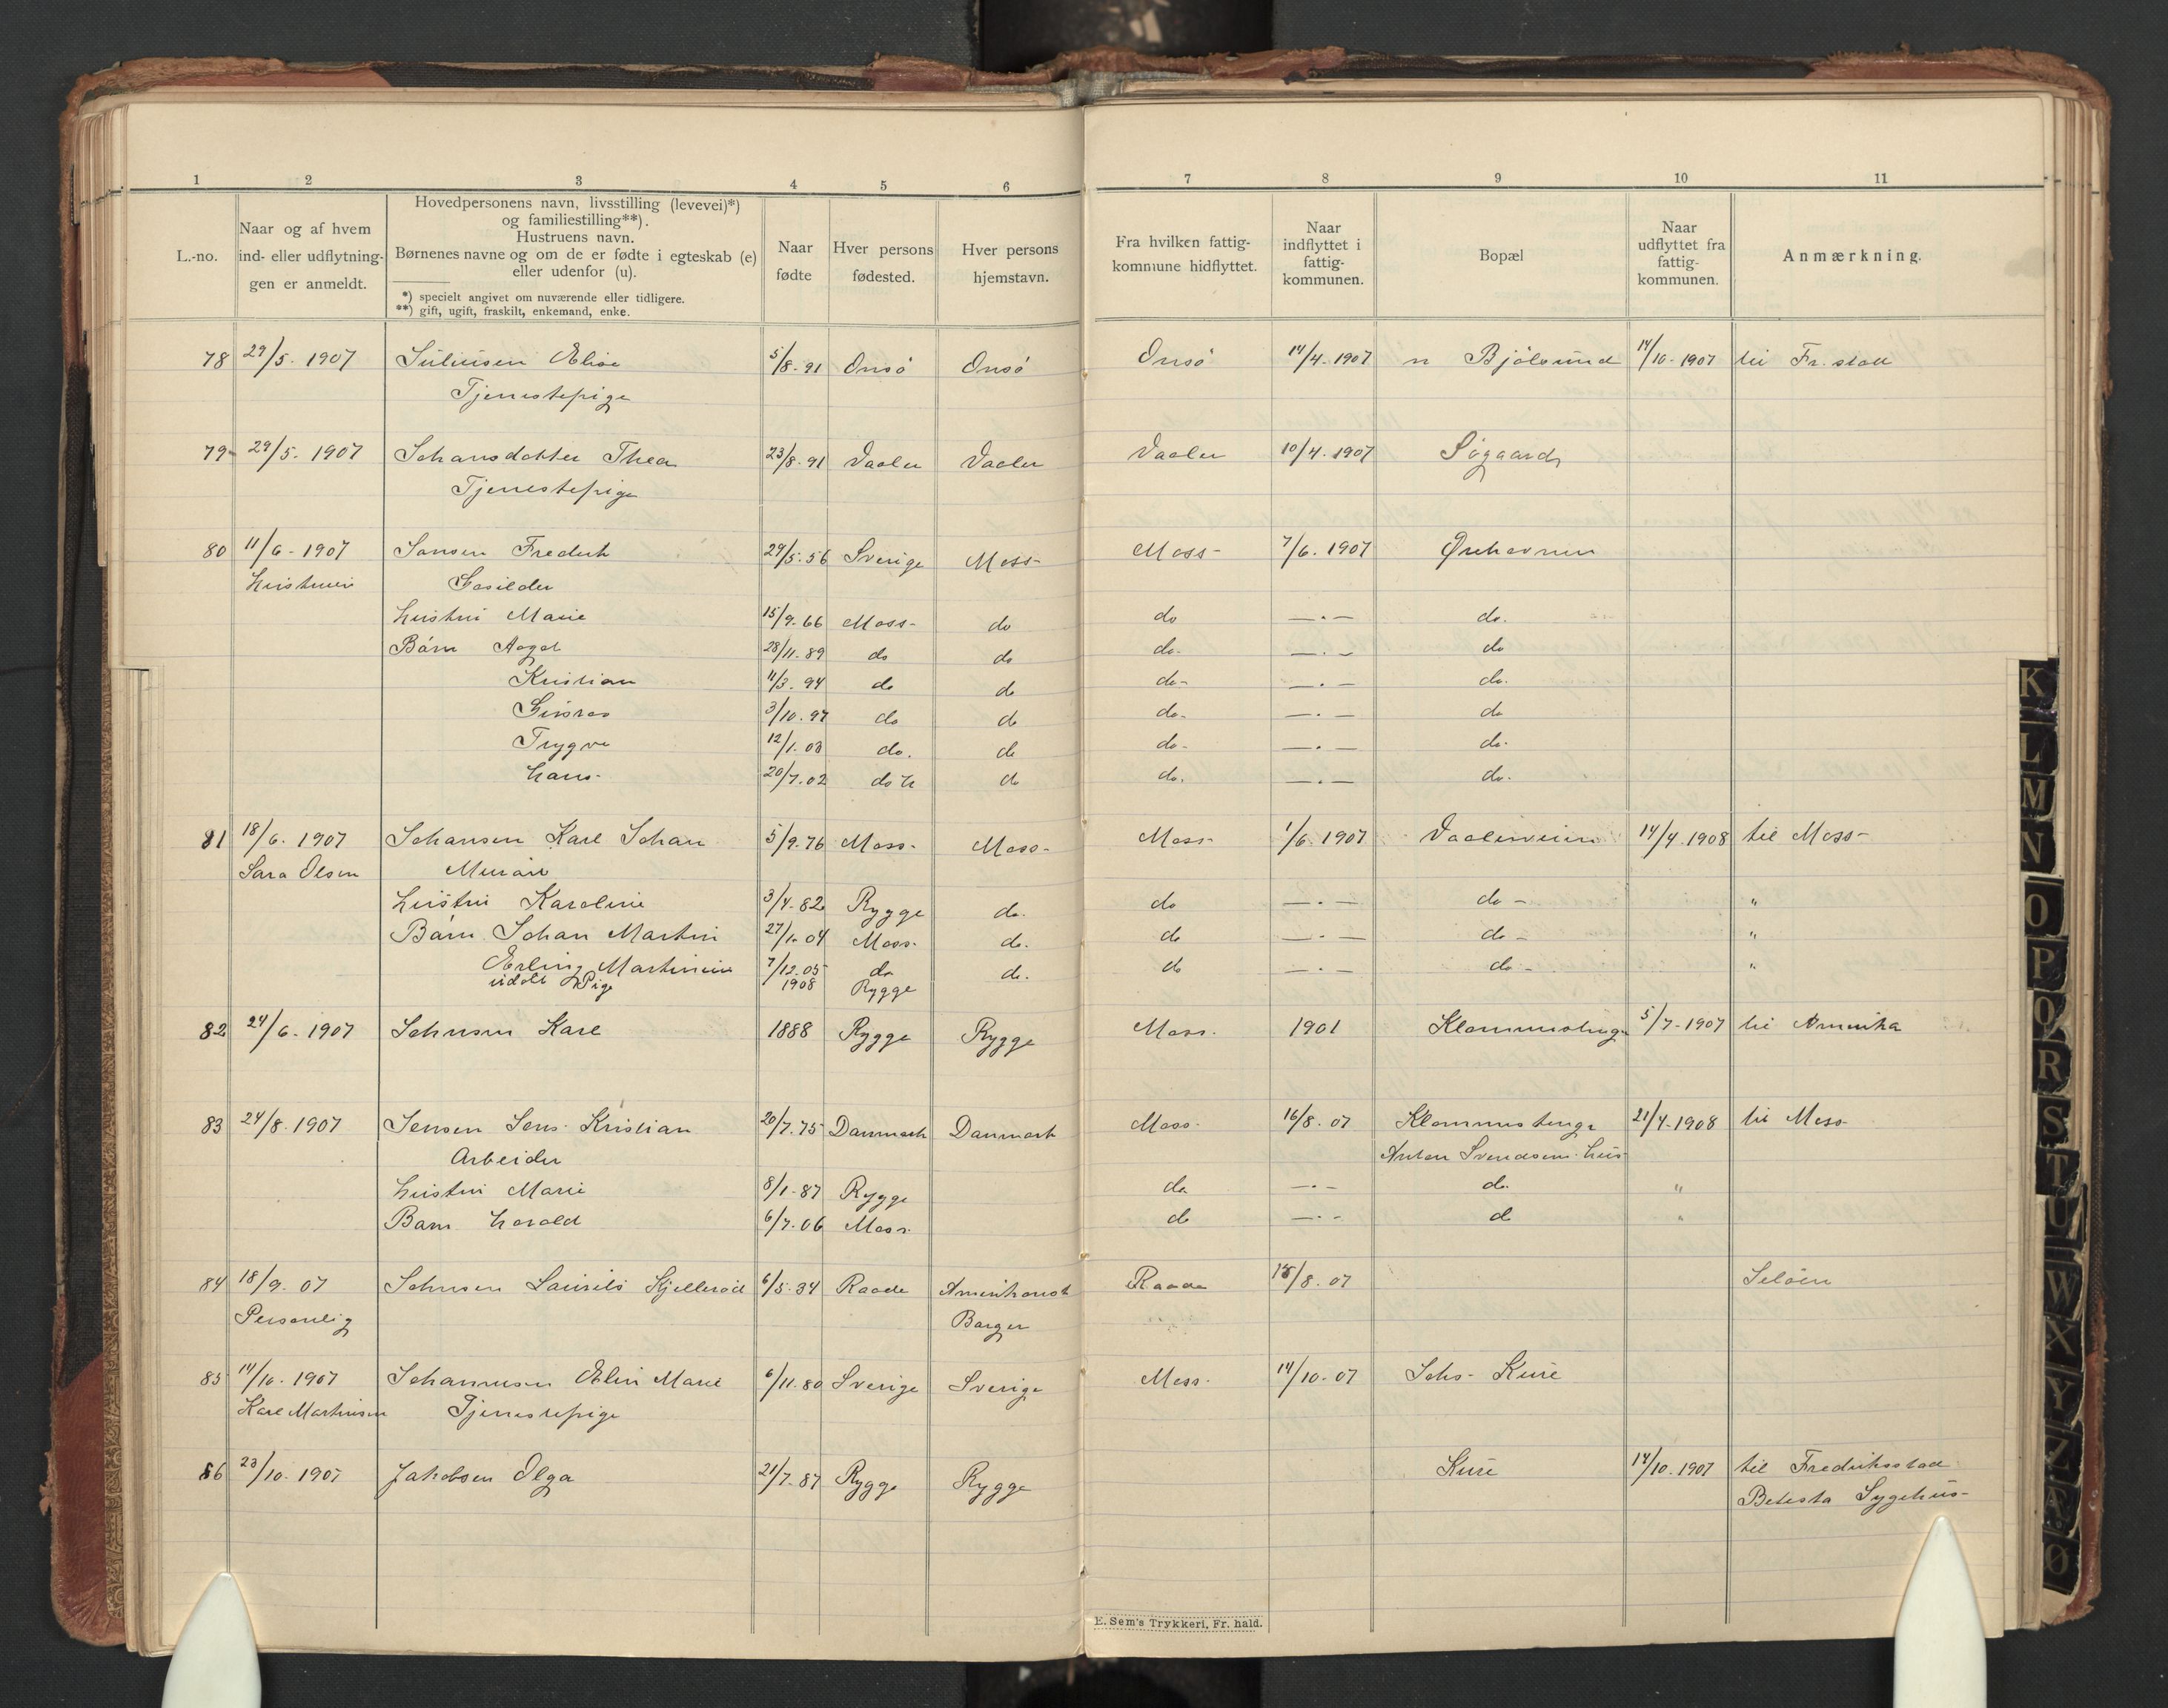 1 2 3 4 5 6 7 8 9 10 11
L.-no.
Naar og af hvem
ind- eller udflytnin-
gen er anmeldt.
Hovedpersonens navn, livsstilling (levevei)*)
og familiestilling**).
Hustruens navn.
Børnenes navne og om de er fødte i egteskab (e)
eller udenfor (u).
*) specielt angivet om nuværende eller tidligere.
**) gift, ugift, fraskilt, enkemand, enke.
Naar
fødte
Hver persons
fødested.
Hver persons
hjemstavn.
Fra hvilken fattig-
kommune hidflyttet.
Naar
indflyttet i
fattig-
kommunen.
Bopæl
Naar
udflyttet fra
fattig-
kommunen.
Anmærkning.
78 29/5. 1907 Juliusen Elise 5/8-91 Onsö Onsö Onsö 14/4-1907 n Bjölsund 14/10-1907 til Fr. stad
Tjenestepige
79 29/5. 1907 Johansdatter Thea 23/8-91 Vaaler Vaaler Vaaler 10/4-1907 Sögaard
Tjenestepige
80 11/6-1907 Jansen Fredrik 29/5-56 Sverige Moss- Moss- 7/6. 1907
Hustruen
Hustru Marie 15/9-66 Moss- do do —·— do.
Börn Aagot 28/11-89 do do do- —·— do
Kristian 11/3-94 do do do- —·— do.
3/10-97 do do do- —·— do
Trygve 12/1.03 do. do do- —·— do.
Hans- 20/7.02 do do do. —·— do.
81 18/6. 1907 Johansen Karl Johan 5/9-76 Moss- Moss- Moss- 1/6. 1907 Vaalerveien 14/4.1908 til Moss-
Sara Olsen Murer
Hustru Karoline 3/4-82 Rygge do. do —·— do - "
Barn Johan Martin 27/1-04 Moss- do. do —·— do - "
Erling Martinius 7/12.05 do do. do —·— do - "
udöbt Pige 1908 Rygge
82 24/6-1907 Johnsen Karl 1888 Rygge Rygge Moss. 1901 5/7-1907 til Amerika
83 24/8.1907 Jensen Jens Kristian 20/7.75 Danmark Danmark Moss- 16/8. 07 21/4-1908 til Moss
Arbeider Anton Svendsens hus
Hustru Marie 8/1-87 Rygge do —·— do. "
Barn Harald 6/7.06 Moss. do —·— do "
84 18/9. 07 Johnsen Laurits Kjelleröd 6/5-34 Raade Amerikansk Raade 15/8. 07
Personlig Borger
85 14/10. 1907 Johannesen Elin Marie 6/11.80 Sverige Sverige Moss. 14/10-07 Johs- Kure
Karl Martinsen Tjenestepige
86 23/10. 1907 Jakobsen Olga 21/7-87 Rygge Rygge Kure 14/10.1907 til Fredriksstad
Betesta Sygehus-
E. Sem's Trykkeri, Fr. hald.
K
L
M
N
O
P
Q
R
S
T
U
W
X
Y
Z
Æ
Ø